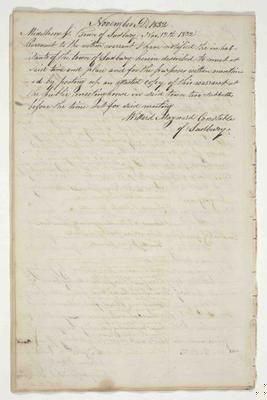 November 12, 1832
Middlesex Ss. Town of Sudbury Nov. 12th 1832
Persuant to the within warrant I have notified the inhab-
itants of the town of Sudbury herein described to meet at
said time and place and for the purposes within mention-
ed by posting up an attested copy of this warrant at
the Public meetinghouse in said town two sabbaths
before the time set for said meeting
Willard Maynard Constable
of Sudbury